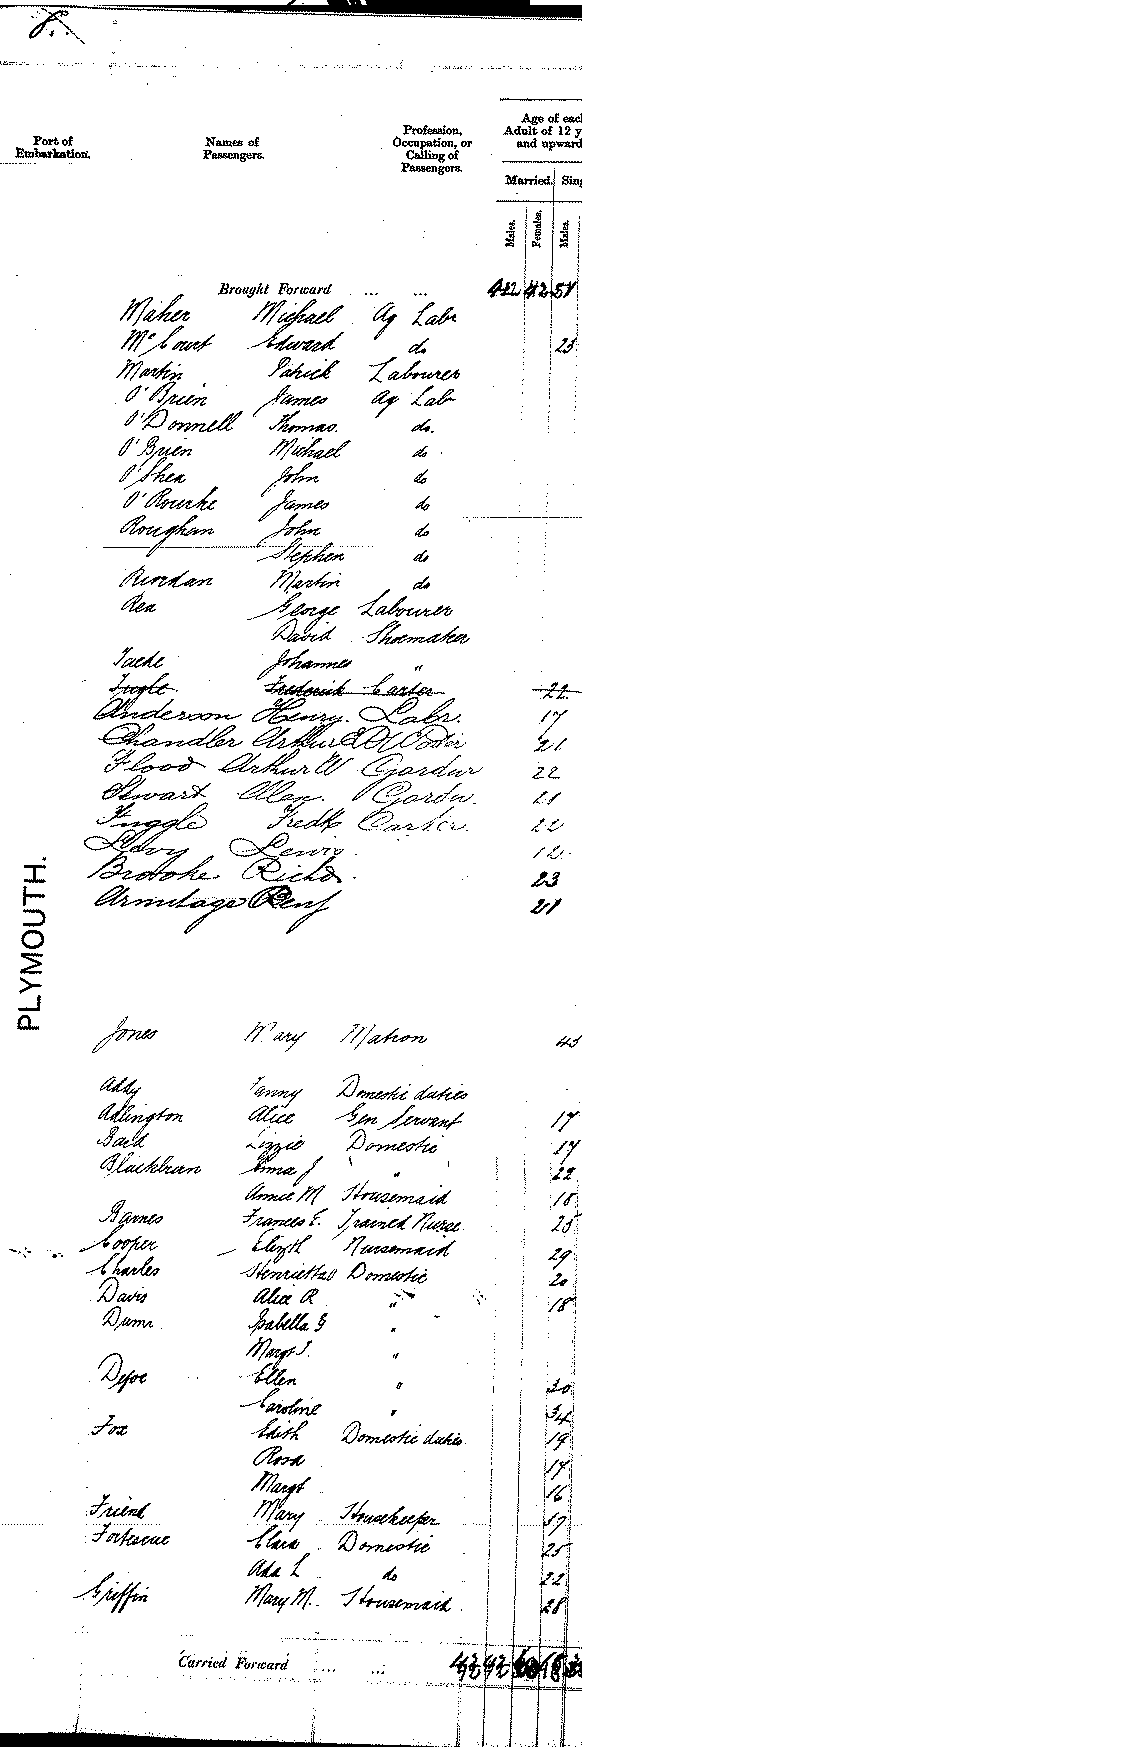 8.
Port of Embarkation.
Names of Passengers.
Profession, Occupation, or Calling of Passengers.
Age of eac
Adult of 12 y
and upward
Married. Sing
Males. Females. Males.
Brought Forward ... ... 42 42 51
Maher Michael Ag Labr
McCourt Edward do 23
Martin Patrick Labourer
O'Brien James Ag Lab
O'Donnell Thomas. do.
O'Brien Michael do
O'Shea John do
O'Rourke James do
Roughan John do
Stephen do
Riordan Martin do
Rea George Labourer
David Shoemaker
Johannes "
Frederick Carter 22
Anderson Henry. Labr. 17
Chandler Arthur 21
Flood Arthur W 22
Stewart Alan. 21
Fuggle Fredk Carter. 22
Levy Lewis. 12
Brooke Richd. 23
Armitage Benj 21
PLYMOUTH.
Jones Mary Matron 43
Addy Fanny Domestic duties
Adlington Alice Gen Servant 17
Lizzie Domestic 17
Blackburn Emma J " 22
Annie M Housemaid 18
Barnes Frances E. Trained Nurse 25
Cooper Elizth Nursemaid 29
Charles Henrietta Domestic 20
Davis Alice R " 18
Isabella G "
Margt J. "
Defoe Ellen " 30
Caroline " 34
Fox Edith Domestic duties 19
Rosa 17
Margt 16
Friend Mary Housekeeper 37
Fortescue Clara Domestic 25
Ada L do 22
Griffin Mary M. Housemaid 28
Carried Forward ... ...